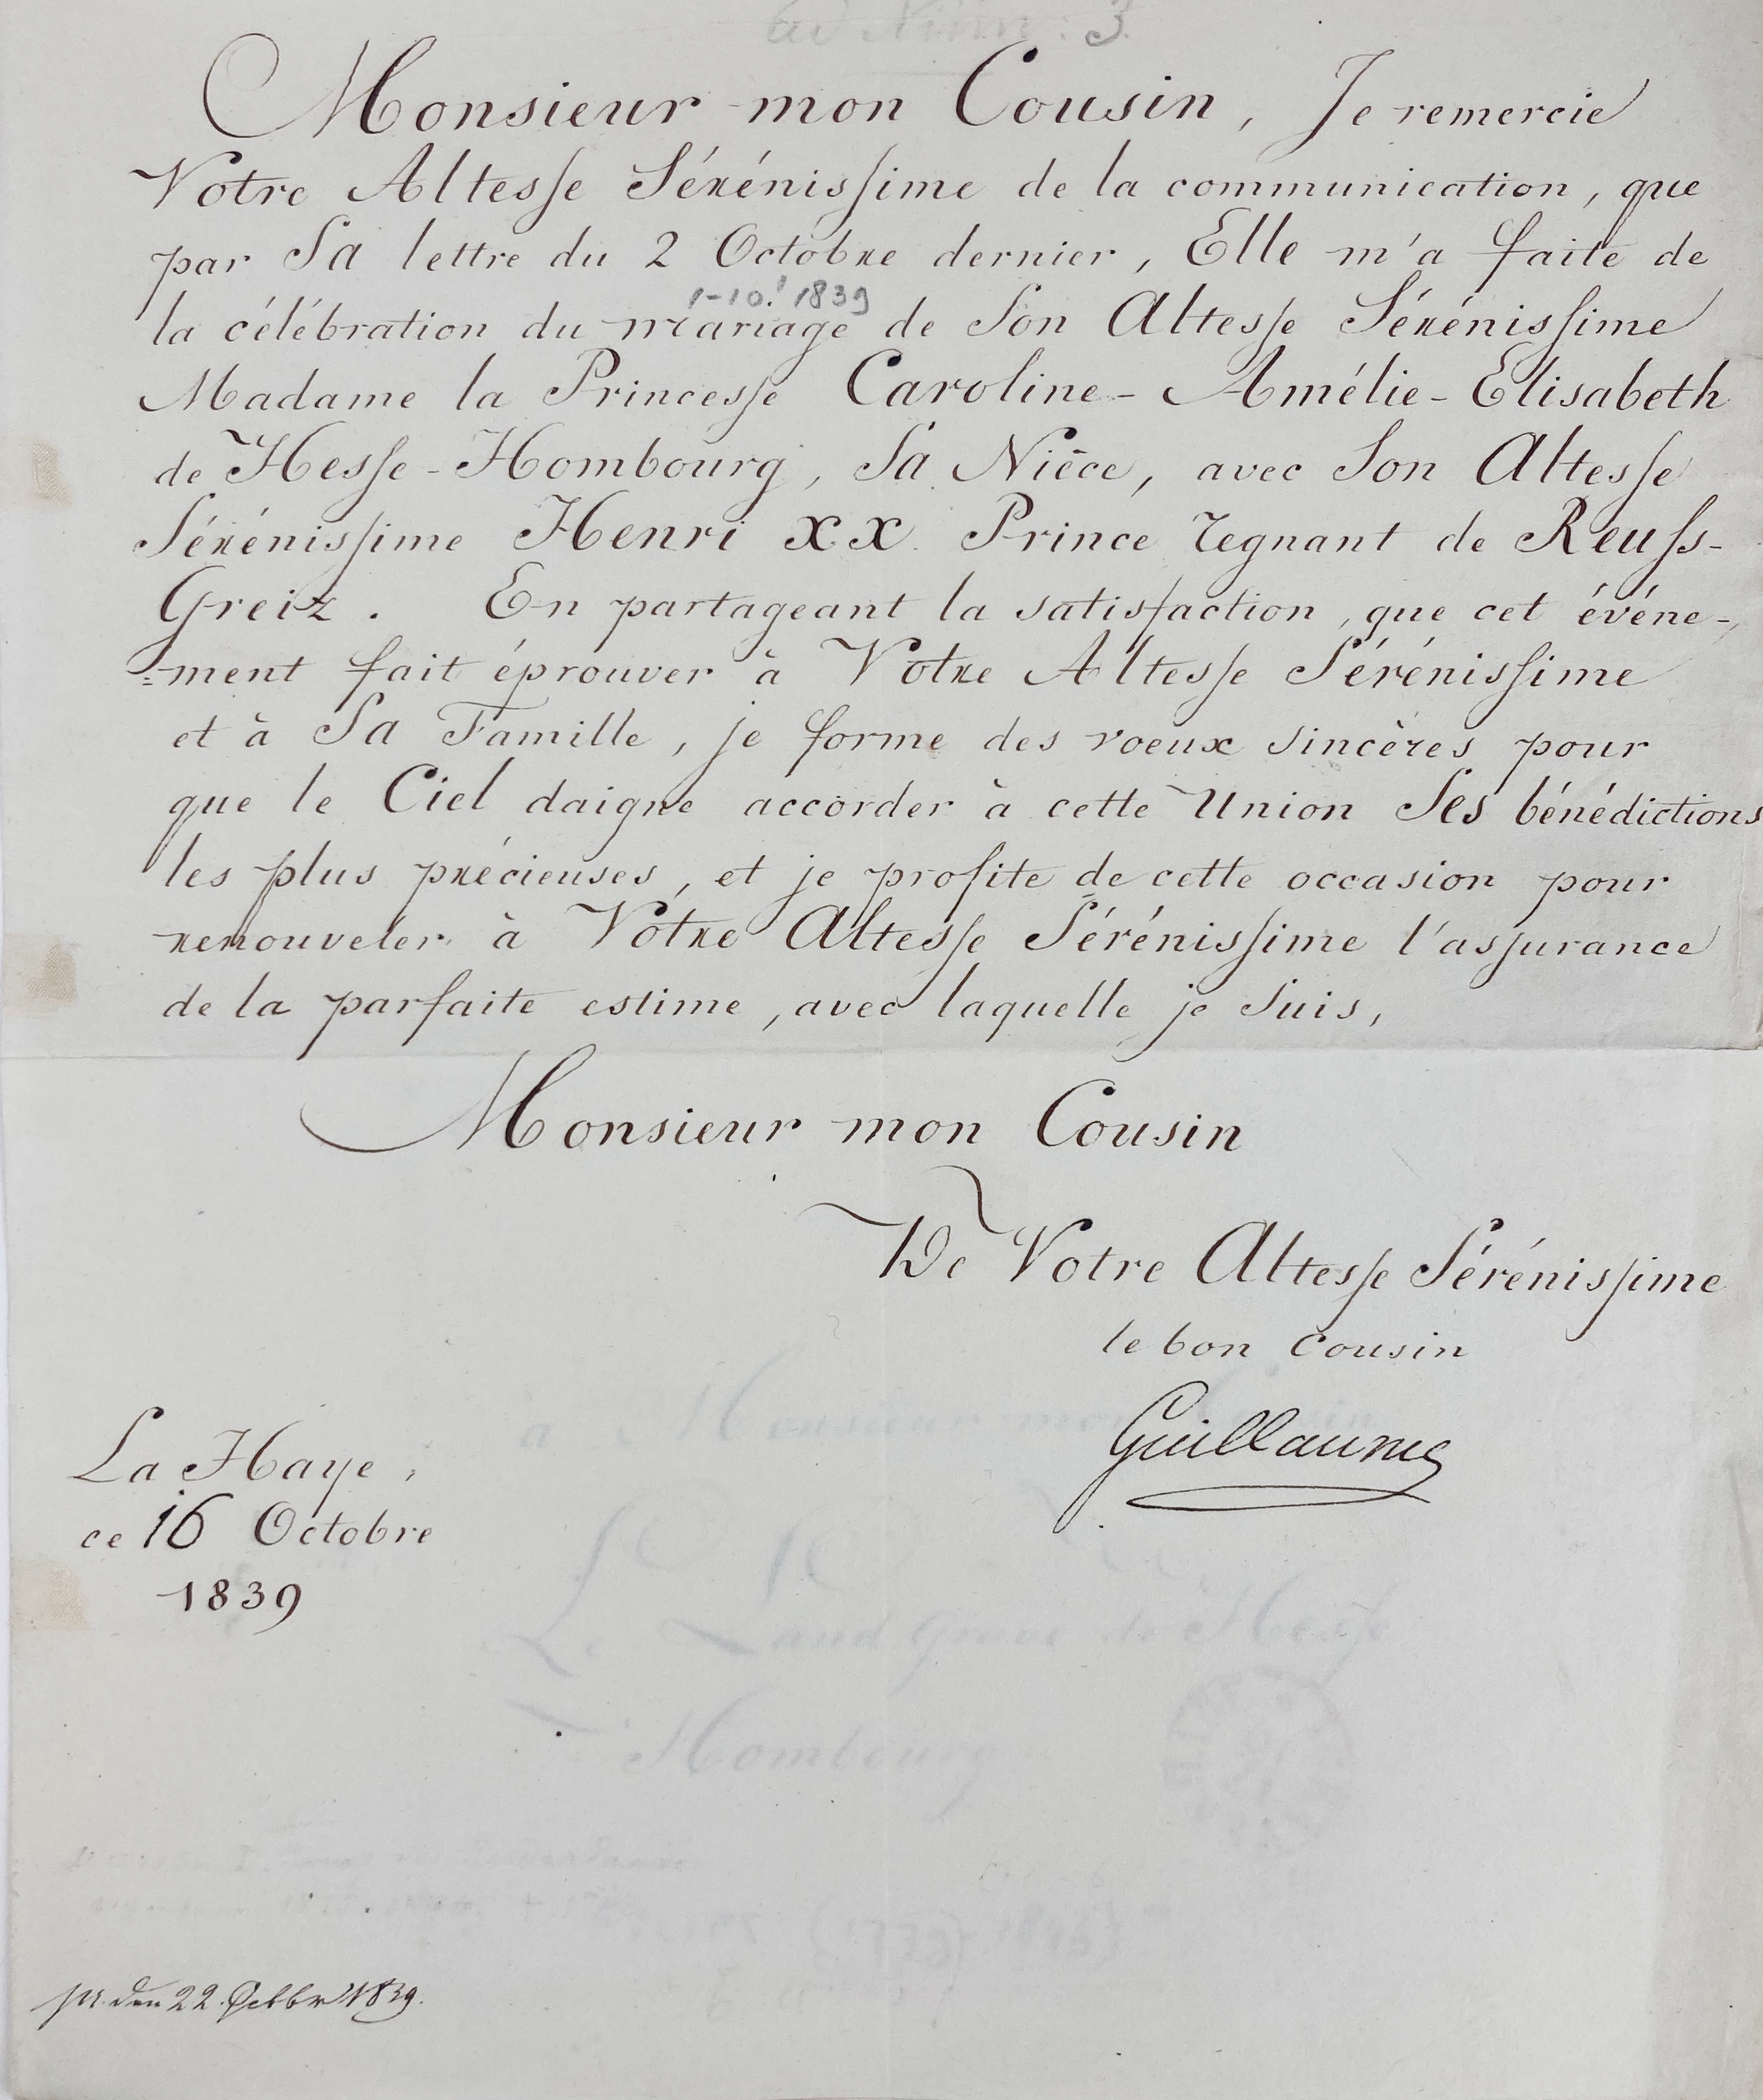 ad Num: 3.
Monsieur mon Cousin, Je remercie
Votre Altesse Sérénissime de la communication, que
par Sa lettre du 2 Octobre dernier, Elle m'a faite de
1-10.' 1839
la célébration du mariage de Son Altesse Sérénissime
Madame la Princesse Caroline-Amélie-Elisabeth
de Hesse-Hombourg, Sa Nièce, avec Son Altesse
Sérénissime Henri XX. Prince regnant de Reuss-
Greiz. En partageant la satisfaction, que cet événe-
=ment fait éprouver à Votre Altesse Sérénissime
et à Sa Famille, je forme des voeux sincères pour
que le Ciel daigne accorder à cette Union Ses bénédictions
les plus précieuses, et je profite de cette occasion pour
renouveler à Votre Altesse Sérénissime l'assurance
de la parfaite estime, avec laquelle je suis,
Monsieur mon Cousin
De Votre Altesse Sérénissime
le bon Cousin
Guillaume
La Haye,
ce 16 Octobre
1839
à Monsieur mon Cousin
Le Landgrave de Hesse
Hombourg
pr. den 22. Octbr 1839.